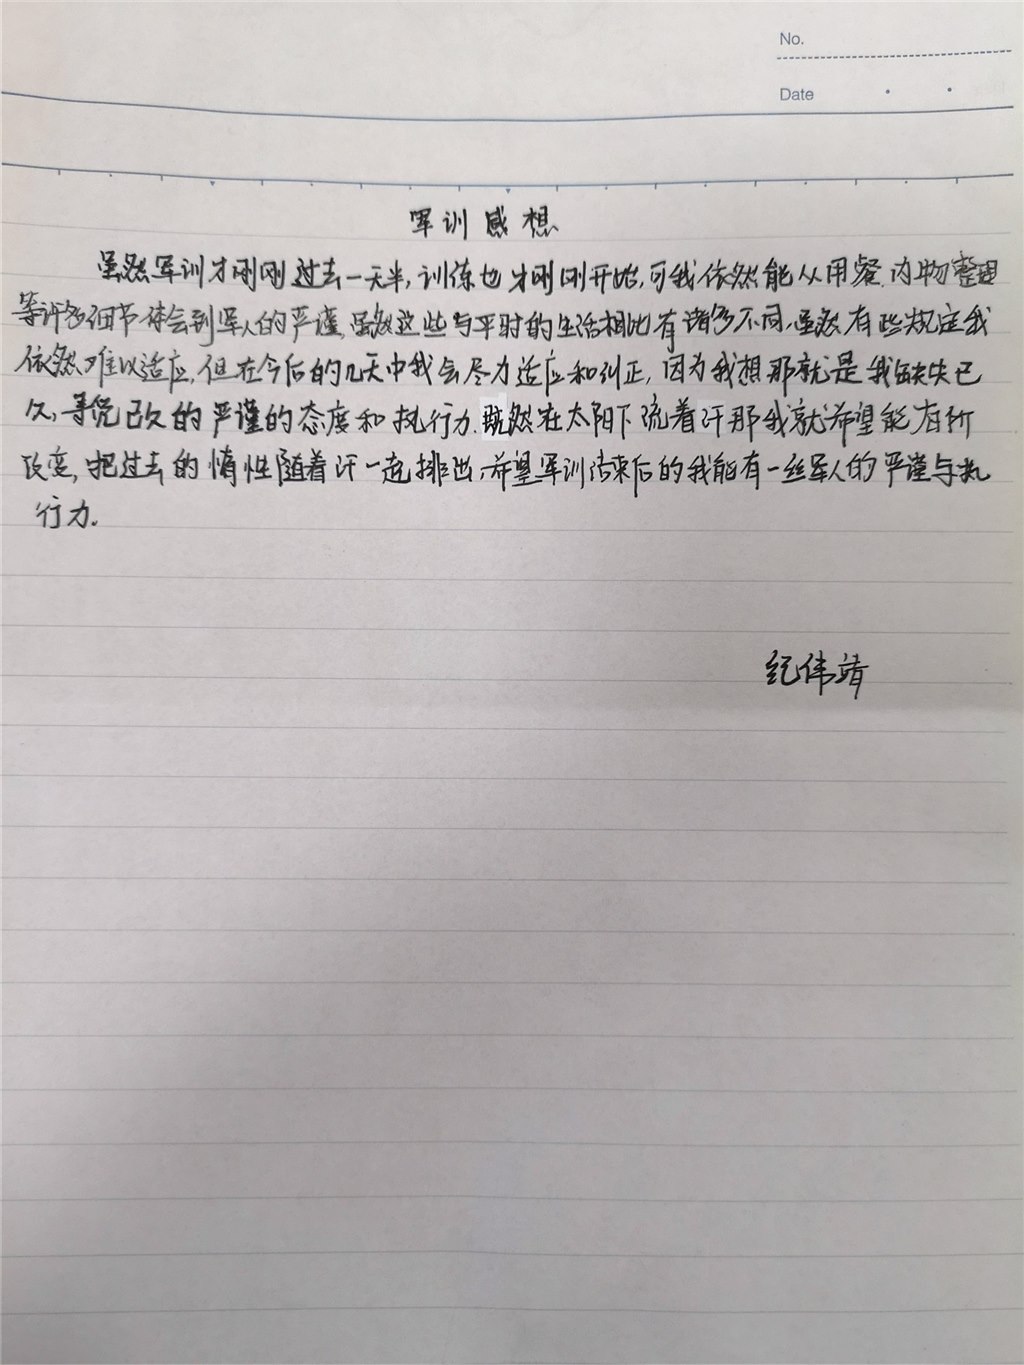 No.
Date
军训感想
虽然军训才刚刚过去一天半,训练也才刚刚开始,可我依然能从用餐、内物整理
等许多细节体会到军人的严谨,虽然这些与平时的生活相比有诸多不同,虽然有些规定我
依然难以适应,但在今后的几天中我会尽力适应和纠正,因为我想那就是我缺失已
久、寻觅已久的严谨的态度和执行力.既然在太阳下流着汗那我就希望能有所
改变,把过去的惰性随着汗一起排出,希望军训结束后的我能有一丝军人的严谨与执
行力.
纪伟靖